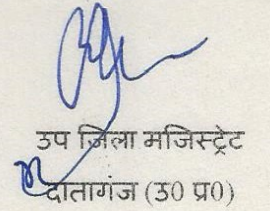 उप जिला मजिस्ट्रेट
दातागंज (उ0 प्र0)